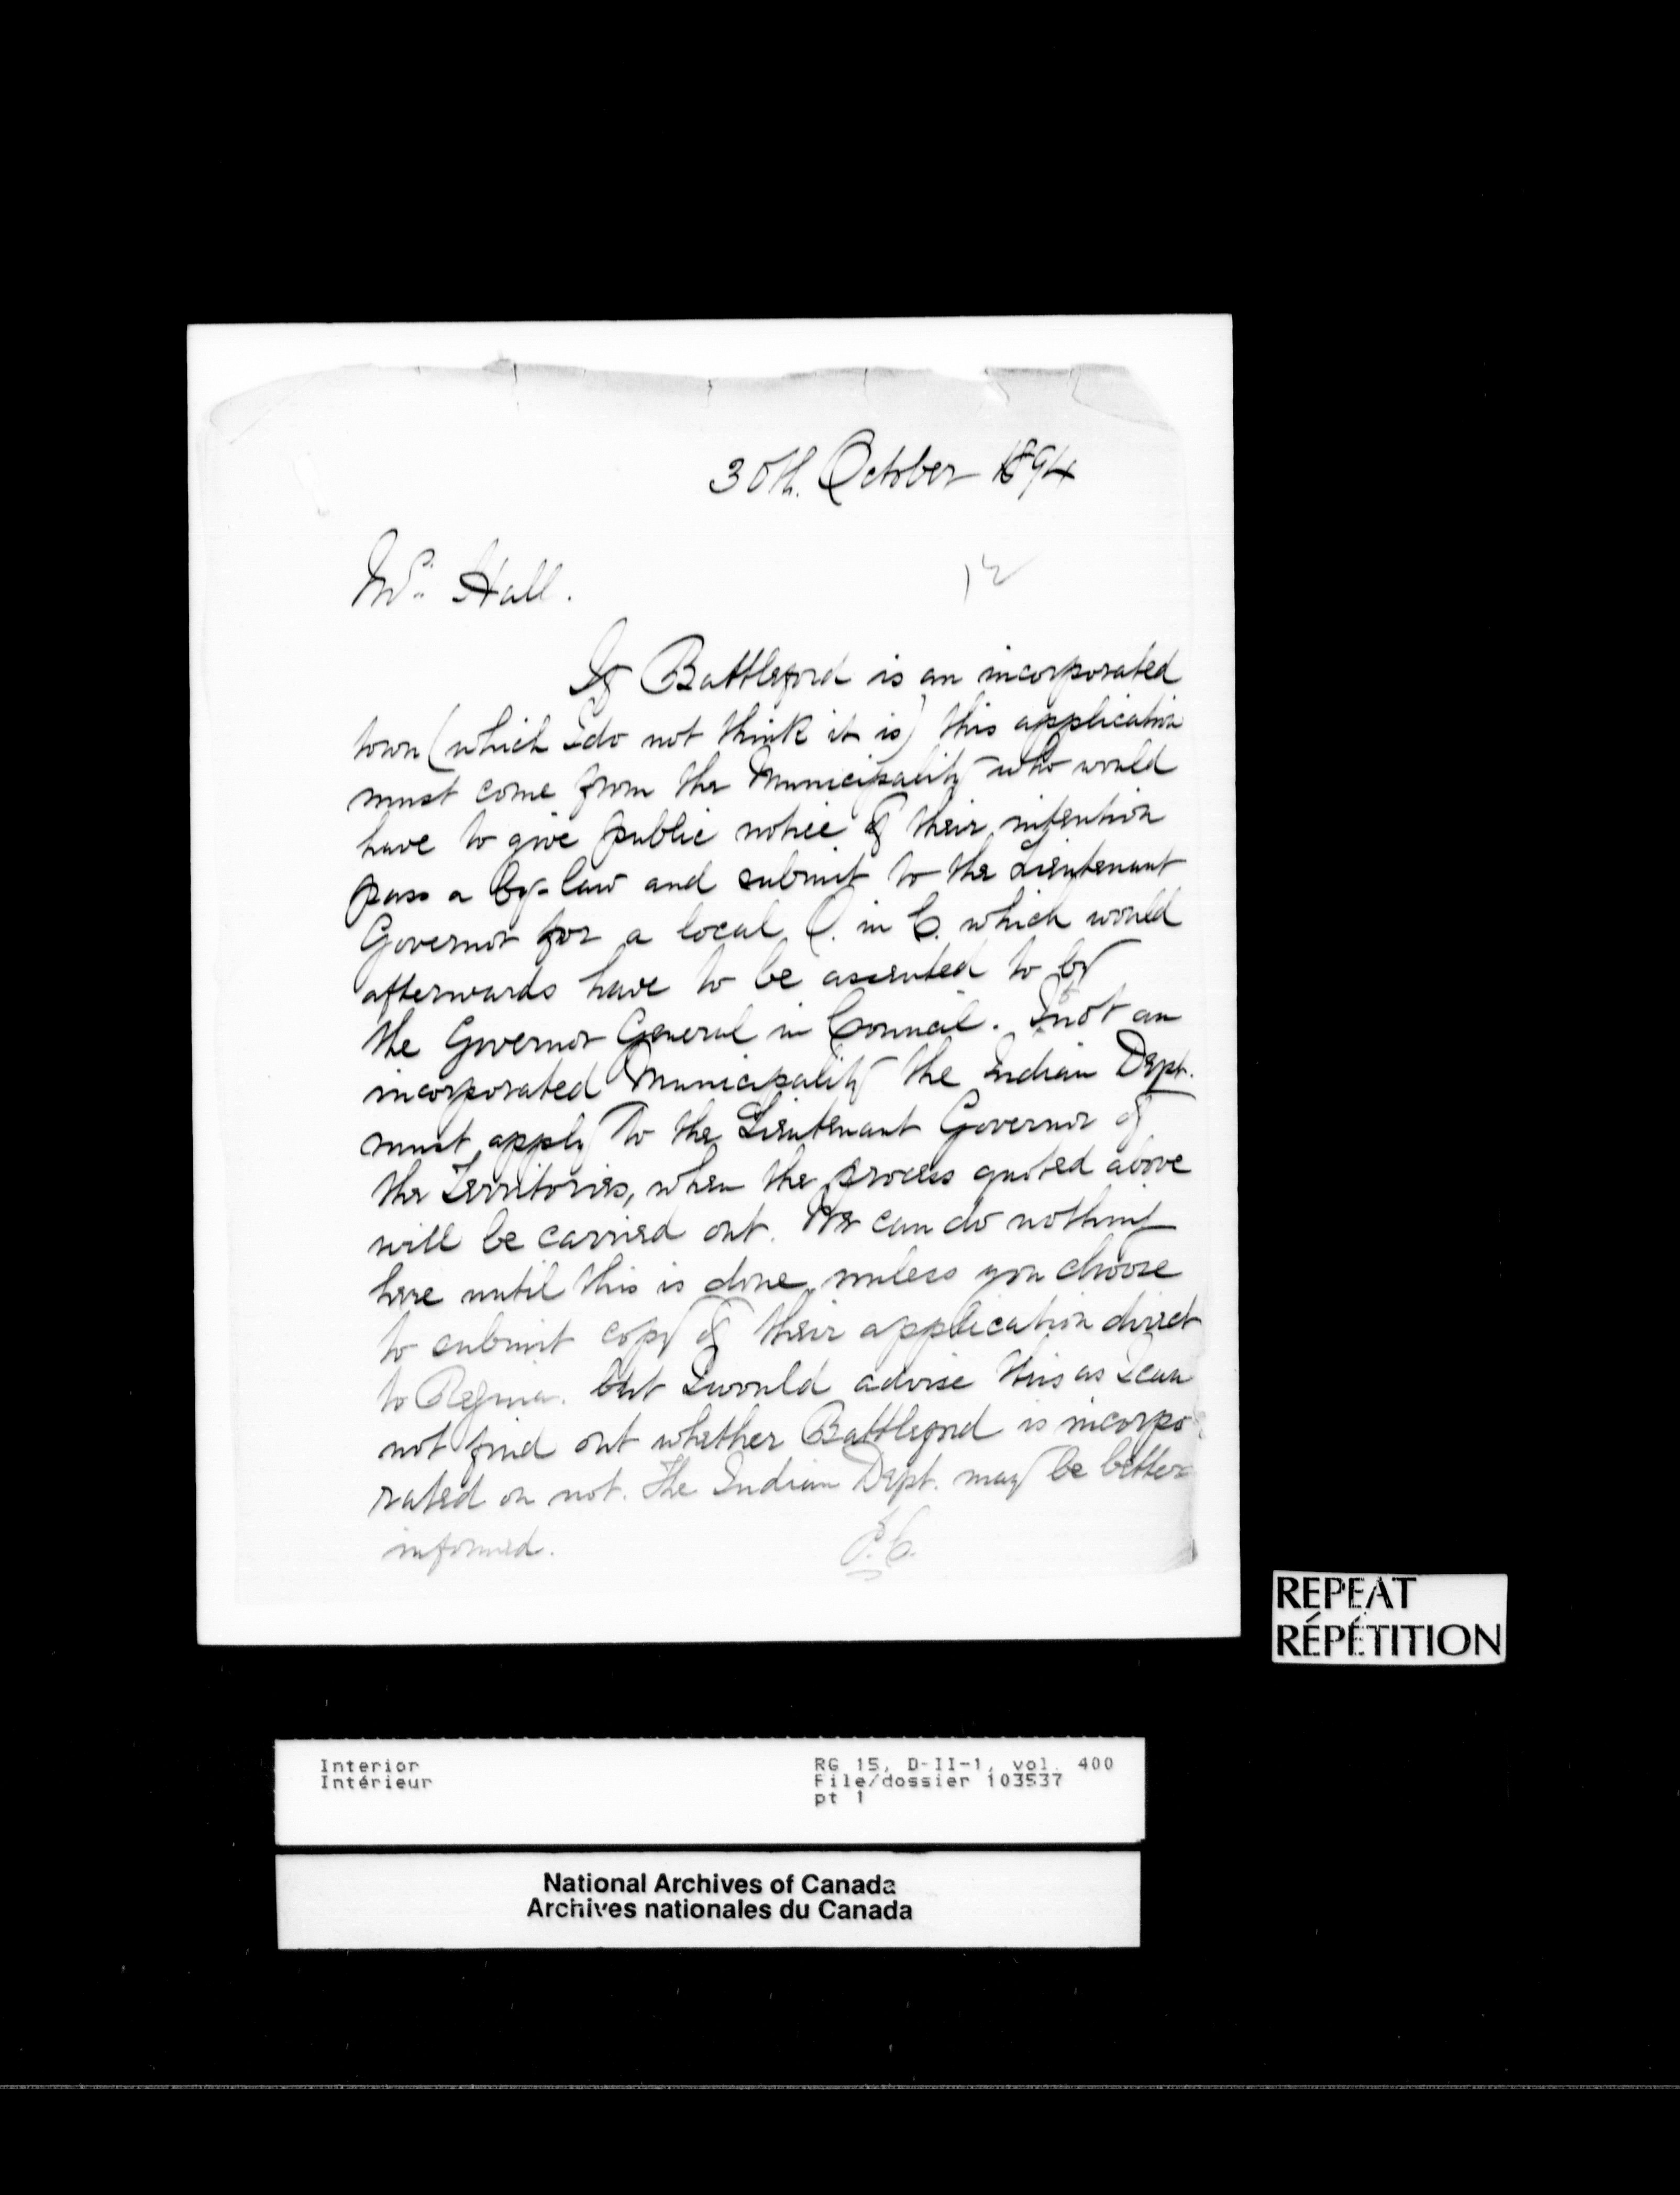 30th. October 1894
Mr. Hall.
If Battleford is an incorporated
town (which I do not think it is) this application
must come from the Municipality who would
have to give public notice of their intention
pass a by-law and submit to the Lieutenant
Governor for a local O. in C. which would
afterwards have to be assented to by
the Governor General in Council. If not an
incorporated Municipality the Indian Dept.
must apply to the Lieutenant Governor of
the Territories, when the process quoted above
will be carried out. We can do nothing
here until this is done, unless you choose
to submit copy of their application direct
to Regina. but I would advise this as I can
not find out whether Battleford is incorpo-
rated or not. The Indian Dept. may be better
informed.
REPEAT
RÉPÉTITION
Interior RG 15, D-II-1, vol. 400
Intérieur File/dossier 103537
pt 1
National Archives of Canada
Archives nationales du Canada